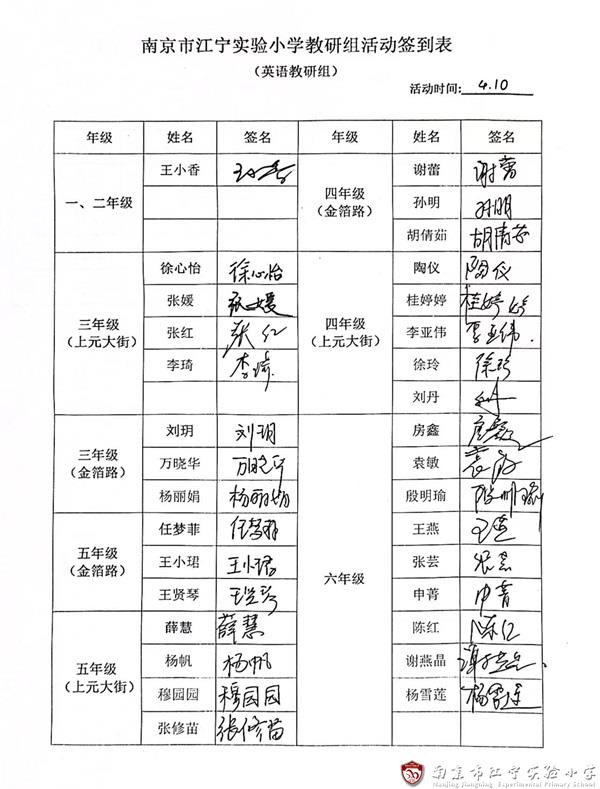 南京市江宁实验小学教研组活动签到表
（英语教研组）
活动时间: 4.10
年级 姓名 签名 年级 姓名 签名
一、二年级 王小香 四年级（金箔路） 谢蕾 谢蕾
孙明 孙明
胡倩茹 胡倩茹
三年级（上元大街） 徐心怡 徐心怡 四年级（上元大街） 陶仪 陶仪
张媛 张媛 桂婷婷 桂婷婷
张红 张红 李亚伟 李亚伟
李琦 李琦 徐玲 徐玲
刘丹
三年级（金箔路） 刘玥 刘玥 六年级 房鑫 房鑫
万晓华 万晓华 袁敏 袁敏
杨丽娟 杨丽娟 殷明瑜 殷明瑜
五年级（金箔路） 任梦菲 任梦菲 王燕 王燕
王小珺 王小珺 张芸 张芸
王贤琴 王贤琴 申菁 申菁
五年级（上元大街） 薛慧 薛慧 陈红 陈红
杨帆 杨帆 谢燕晶
穆园园 穆园园 杨雪莲 杨雪莲
张修苗 张修苗
南京市江宁实验小学
Nanjing Jiangning Experimental Primary School